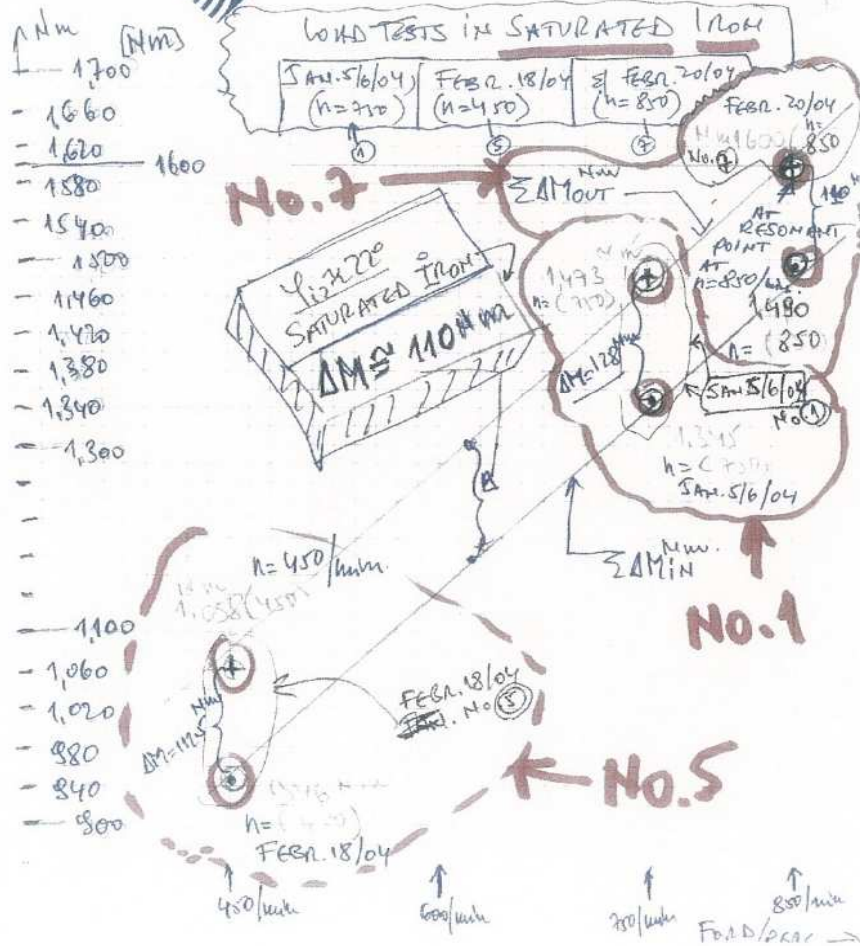 Nm [Nm]
LOAD TESTS IN SATURATED IRON
JAN. 5/6/04, FEBR. 18/04 & FEBR. 20/04
(n=750) (n=450) (n=850)
① ⑤ ⑦
1,700
1,660
1,620
1600
1,580
1,540
1,500
1,460
1,420
1,380
1,340
1,300
1,100
1,060
1,020
980
940
900
FEBR. 20/04
n=
Nm 1600 850
No. ⑦
No.7
ΣΔMOUT Nm
AT
RESONANT
POINT
AT
n=850/min.
1,490
n= (850)
SATURATED IRON
ΔM≅ 110 Nm
Nm
1,473
n= (750)
ΔM=128 Nm
JAN. 5/6/04
No ①
1,345
n= (750)
JAN. 5/6/04
ΣΔMIN Nm.
No.1
n= 450/min.
Nm
1,058 (450)
ΔM=112.5 Nm
FEBR. 18/04
No ⑤
No.5
n=
FEBR. 18/04
450/min 600/min 750/min 850/min